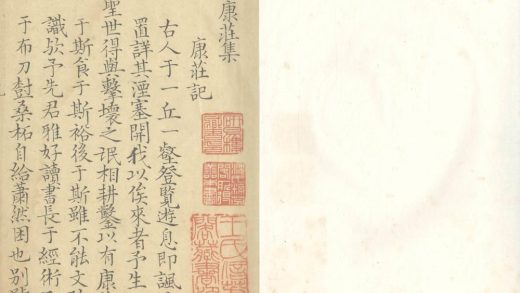 康莊集
康莊記
右人于一丘一壑登覽遊息即諷
置詳其湮塞開我以俟來者予生
聖世得與擊壤之氓相耕鑿以有康
于斯食于斯裕後于斯雖不能文
識欤予先君雅好讀書長于經術
于布刀尌桑柘自給蕭然困也別